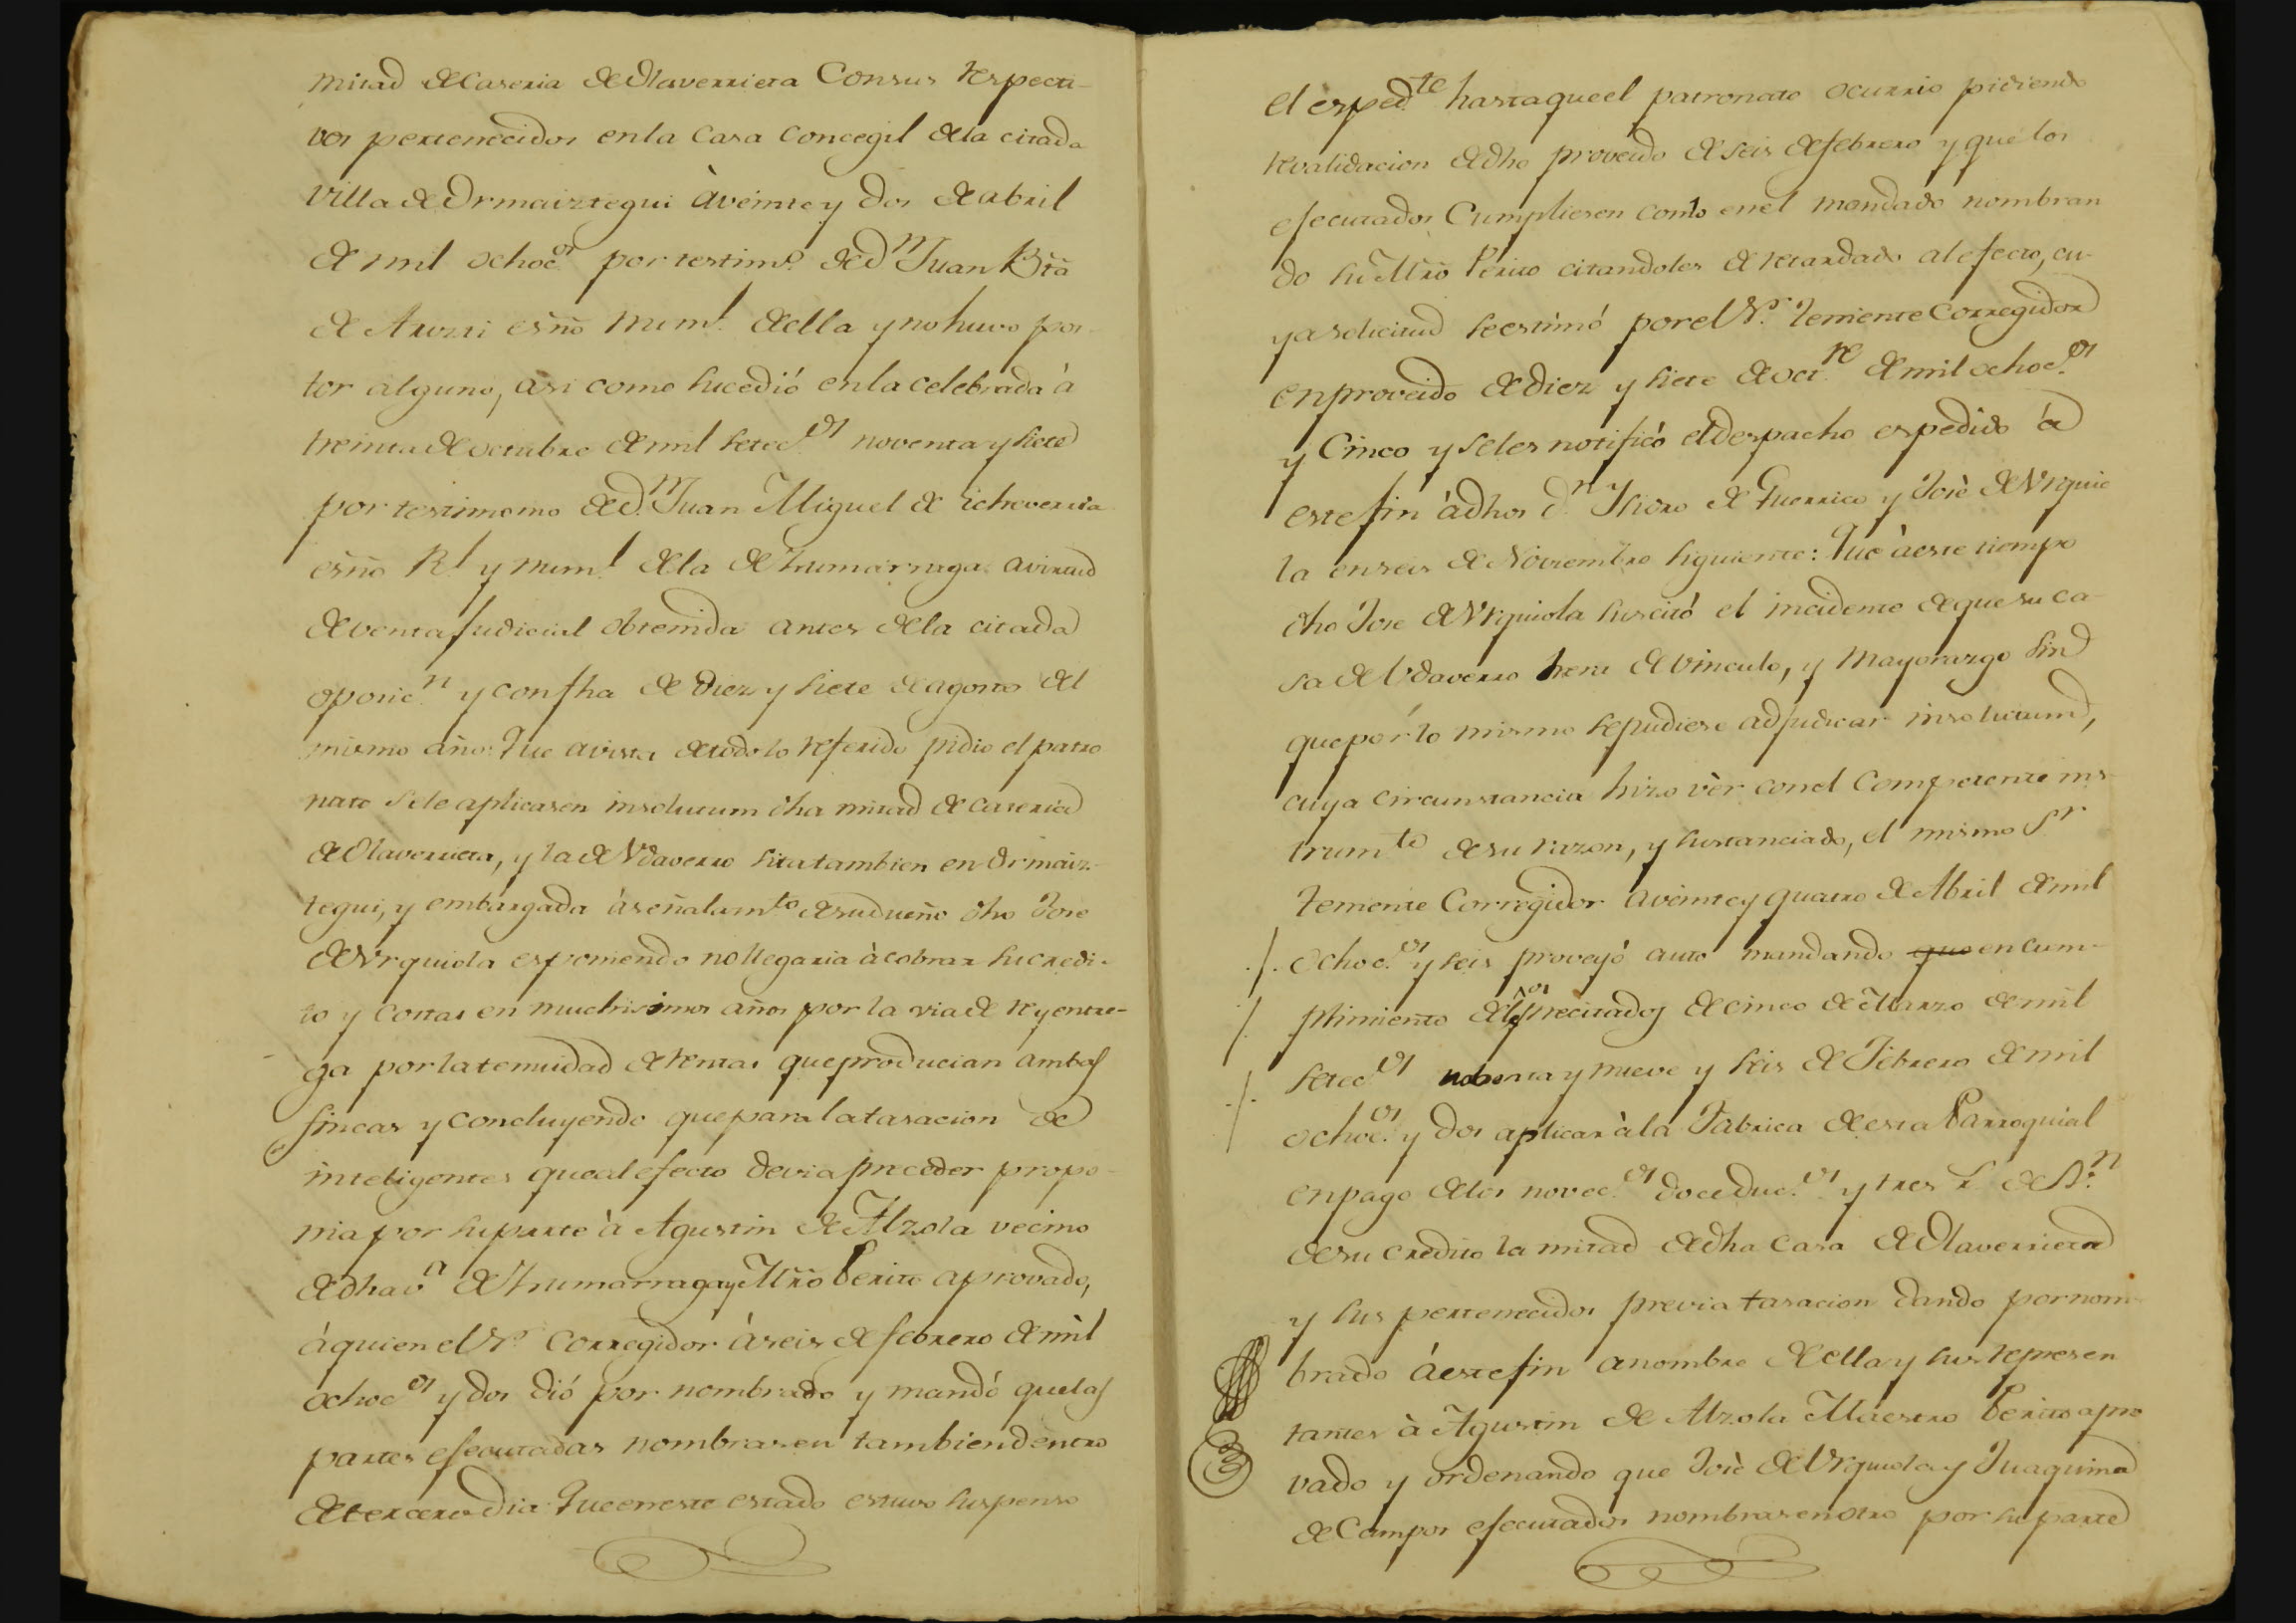 mitad de Caseria de Olaverrieta Consus respecti-
vos pertenecidos en la Casa Concegil de la citada
Villa de Ormaiztegui à veinte y dos de abril
de mil ochoc.os por testim.o de d.n Juan Btã
de Arozti esño num.l de ella y no huvo pos-
tor alguno, asi como sucedió en la celebrada à
treinta de octubre de mil setec.os noventa y siete
por testimonio de d.n Juan Miguel de Echeverria
esño R.l y num.l de la de Zumarraga a virtud
de venta judicial obtenida antes de la citada
oposic.n y con fha de diez y siete de agosto del
mismo año: Que a vista de todo lo referido pidio el patro
nato se le aplicasen insolutum dha mitad de caseria
de Olaverrieta, y la de Vdaverro sita tambien en Ormaiz-
tegui, y embargada à señalam.to de su dueño dho Jose
de Vrquiola esponiendo no llegaria à cobrar su credi-
to y costas en muchisimos años por la via de reyentre-
ga por la tenuidad de rentas que producian ambas
fincas y concluyendo que para la tasacion de
inteligentes que al efecto devia preceder propo-
nia por su parte à Agustin de Alzola vecino
de dha v.a de Zumarraga y Mrõ Perito aprovado,
á quien el S.r Corregidor à seis de febrero de mil
ochoc.os y dos dió por nombrado y mandó que las
partes ejecutadas nombrasen tambien dentro
de tercero dia: Que en este estado estuvo suspenso
el esped.te hasta que el patronato ocurrio pidiendo
revalidacion de dho proveido de seis de febrero y que los
ejecutados Cumpliesen con lo en el mandado nombran
do su Mrõ Perito citandoles de retardado al efecto, cu-
ya solicitud se estimó por el S.r Teniente Corregidor
en proveido de diez y siete de oct.re de mil ochoc.os
y Cinco y se les notificó el despacho espedido á
este fin à dhos d.n Isidro de Guerrico y José de Vrquio
la en seis de Noviembre siguiente: Que à este tiempo
dho Jose de Vrquiola suscitó el incidente de que su ca-
sa de Vdaverro hera de vinculo, y Mayorazgo sin
que por lo mismo se pudiese adjudicar insolutum,
cuya circunstancia hizo vèr con el Competente ins-
trum.to de su razon, y sustanciado, el mismo S.r
Teniente Corregidor a veinte y quatro de Abril de mil
./. ochoc.os y seis proveyó auto mandando que en cum-
./ plimiento de los precitados de cinco de Marzo de mil
./. setec.os nobenta y nueve y seis de Febrero de mil
/ ochoc.os y dos aplicar à la Fabrica de esta Parroquial
en pago de los novec.os doce duc.os y tres r.s de v.n
de su credito la mitad de dha Casa de Olaverrieta
y sus pertenecidos previa tasacion dando por nom-
brado á este fin a nombre de ella y sus represen
tantes à Agustin de Alzola Maestro Perito apro
vado y ordenando que José de Vrquiola y Juaquina
de Campos ejecutados nombrasen otro por su parte